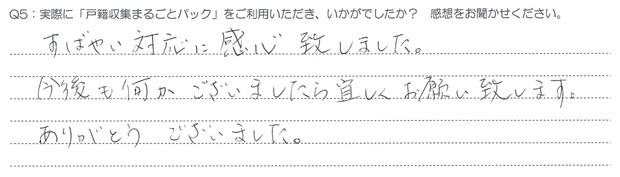 Q5：実際に「戸籍収集まるごとパック」をご利用いただき、いかがでしたか？　感想をお聞かせください。
すばやい対応に感心致しました。
今後も何かございましたら宜しくお願い致します。
ありがとうございました。